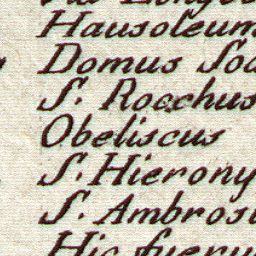 Hausoleum
Domus Soc
S. Rocchus
Obeliscus
S. Hierony
S. Ambrosi
Hic fueru